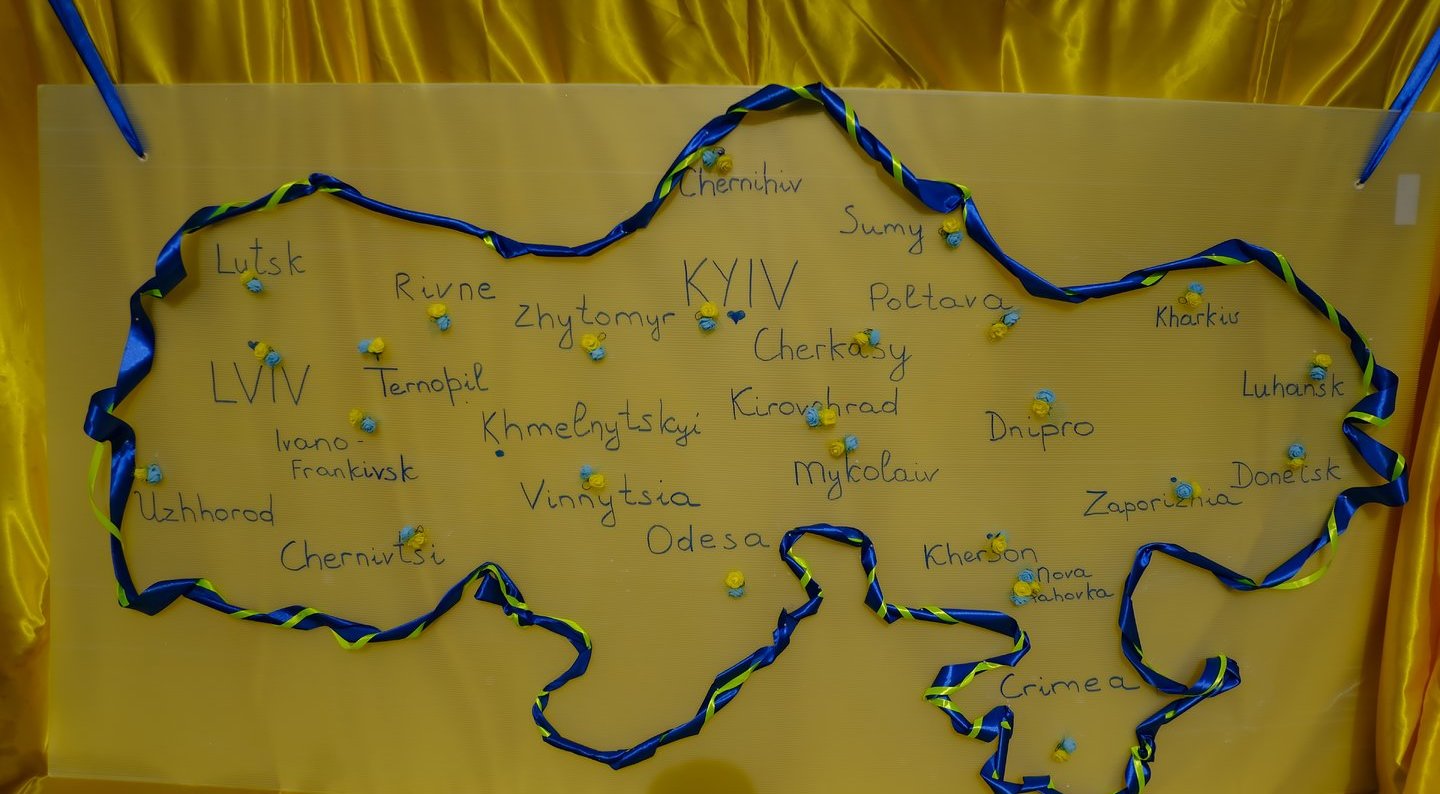 Chernihiv
Sumy
Lutsk
Rivne
KYIV
Zhytomyr
Poltava
Kharkiv
Cherkasy
LVIV
Ternopil
Luhansk
Kirovohrad
Khmelnytskyi
Dnipro
Ivano-
Frankivsk
Mykolaiv
Donetsk
Uzhhorod
Vinnytsia
Zaporizhia
Odesa
Chernivtsi
Kherson
Nova
Kahovka
Crimea